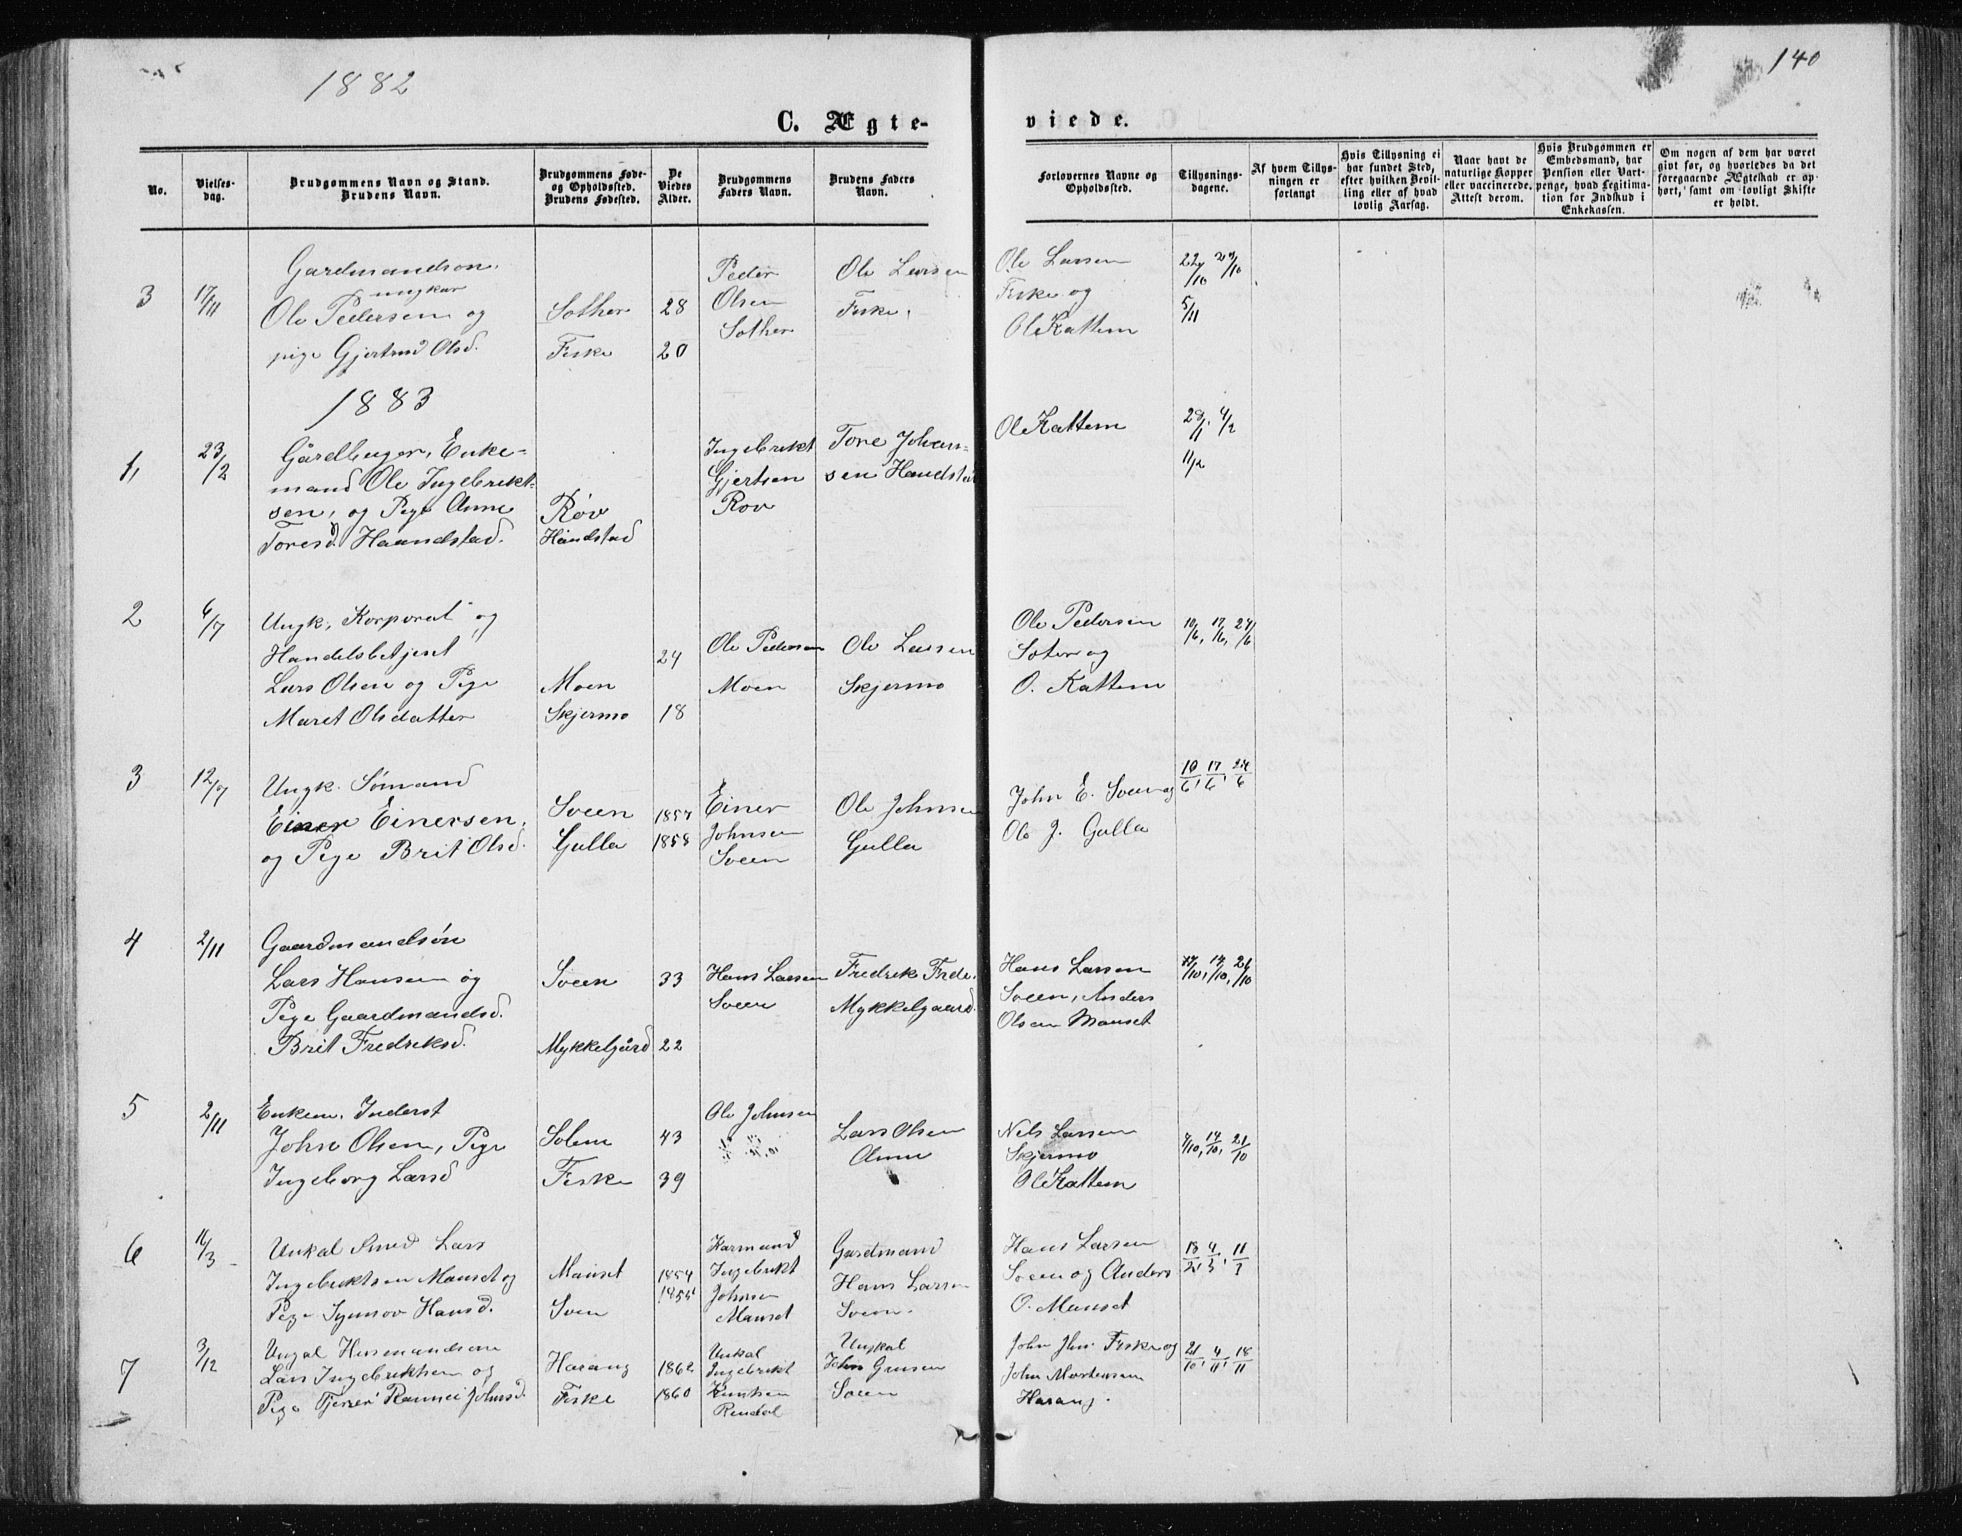 1882
140
C. Ægte-
viede.
No.
Vielses-
dag.
Brudgommens Navn og Stand.
Brudens Navn.
Brudgommens Føde-
og Opholdssted.
Brudens Fødested.
De
Viedes
Alder.
Brudgommens
Faders Navn.
Brudens Faders
Navn.
Forlovernes Navne og
Opholdssted.
Tillysnings-
dagene.
Af hvem Tillys-
ningen er
forlangt
Hvis Tillysning ei
har fundet Sted,
efter hvilken Bevil-
ling eller af hvad
lovlig Aarsag.
Naar havt de
naturlige Kopper
eller vaccinerede.
Attest derom.
Hvis Brudgommen er
Embedsmand, har
Pension eller Vart-
penge, hvad Legitima-
tion for Indskud i
Enkekassen.
Om nogen af dem har været
gift før, og hvorledes da det
foregaaende Ægteskab er op-
hørt, samt om lovligt Skifte
er holdt.
3
17/11
Gardmandson
ungkar
Ole Pedersen og
pige Gjertrud Olsd.
Sother
Fiske
28
20
Peder
Olsen
Sother
Ole Larsen
Fiske.
Ole Larsen
Fiske og
Ole Kattem
22/10 29/10
5/11
1883
1,
23/2
Gårdbruger, Enke-
mand Ole Ingebrikt-
sen, og Pige Anne
Toresd. Haandstad.
Røv
Håndstad
Ingebrikt
Gjertsen
Rov
Tore Johan-
sen Handstad
Ole Kattem
4/2
11/2
2
6/7
Ungk, Korporal og
Handelsbetjent
Lars Olsen og Pige
Maret Olsdatter
Moen
Skjermo
24
18
Ole Pedersen
Moen
Ole Larsen
Skjermo
Ole Pedersen
Soter og
O. Kattem
10/6, 17/6, 24/6
3
12/7
Ungk. Sømand
Einer Einersen,
og Pige Brit Olsd.
Sveen
Gulla
1857
1858
Einer
Johnsen
Sveen
Ole Johnsen
Gulla
John E. Sveen og
Ole J. Gulla
10/6, 17/6, 24/6
4
2/11
Gaardmandsøn
Lars Hansen og
Pige Gaardmandsd.
Brit Fredriksd.
Sveen
Mykkelgård
33
22
Hans Larsen
Sveen
Fredrik Fredr.
Mykkelgaard
Hans Larsen
Sveen, Anders
Olsen Manset
14/10, 21/10
5
2/11
Enkem. Inderst
John Olsen, Pige
Ingeborg Larsd
Solem
Fiske
43
39
Ole Johnsen
Lars Olsen
Nels Larsen
Skjermo
Ole Kattem
7/10, 14/10, 21/10
6
16/3
Unkal Smed Lars
Ingebriktsen Manset og
Pige Synnøv Hansd.
Manset
Sven
1854
Ingebrikt
Johnsen
Manset
Gardmand
Hans Larsen
Sveen.
Hans Larsen
Sveen og Anders
O. Manset
18/2, 4/3, 11/3
7
3/12
Ungal Husmandsøn
Lars Ingebriktsen og
Harang
Fiske
1862
1860
Unkal
Ingebrikt
Knutsen
Rendal
Ungkal
Sveen
Fiske og
John Mortensen
Harang.
21/10, 4/11, 18/11